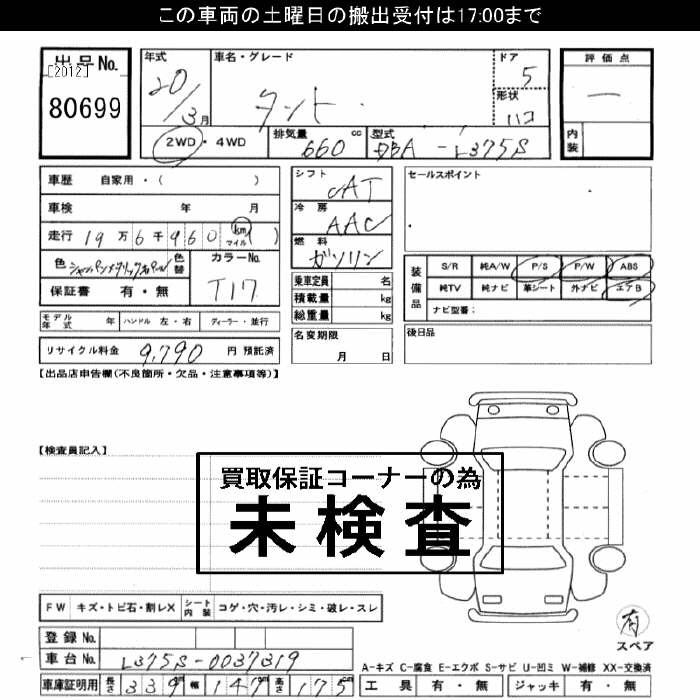 この車両の土曜日の搬出受付は17:00まで
出品No. [2012] 80699
年式 20/3月
車名・グレード タント
ドア 5
形状 ハコ
評価点 —
内装
2WD・4WD
排気量 660 cc
型式 DBA-L375S
車歴 自家用・( )
車検 年 月
走行 19万6千960 (km マイル)( )
色 シャンパンメタリックオパール 色替
カラーNo. T17
保証書 有・無
シフト CAT
冷房 AAC
燃料 ガソリン
乗車定員 名
積載量 kg
総重量 kg
セールスポイント
装備品
S/R 純A/W P/S P/W ABS
純TV 純ナビ 革シート 外ナビ エアB
ナビ型番:
モデル年式 年 ハンドル 左・右 ディーラー・並行
名変期限 月 日
後日品
リサイクル料金 9,790 円 預託済
【出品店申告欄(不良箇所・欠品・注意事項等)】
【検査員記入】
買取保証コーナーの為
未検査
FW キズ・トビ石・割レX シート内装 コゲ・穴・汚レ・シミ・破レ・スレ
有
スペア
登録No.
車台No. L375S-0037319
車庫証明用 長さ 339cm 幅 147cm 高さ 175cm
A-キズ C-腐食 E-エクボ S-サビ U-凹ミ W-補修 XX-交換済
工具 有・無 ジャッキ 有・無